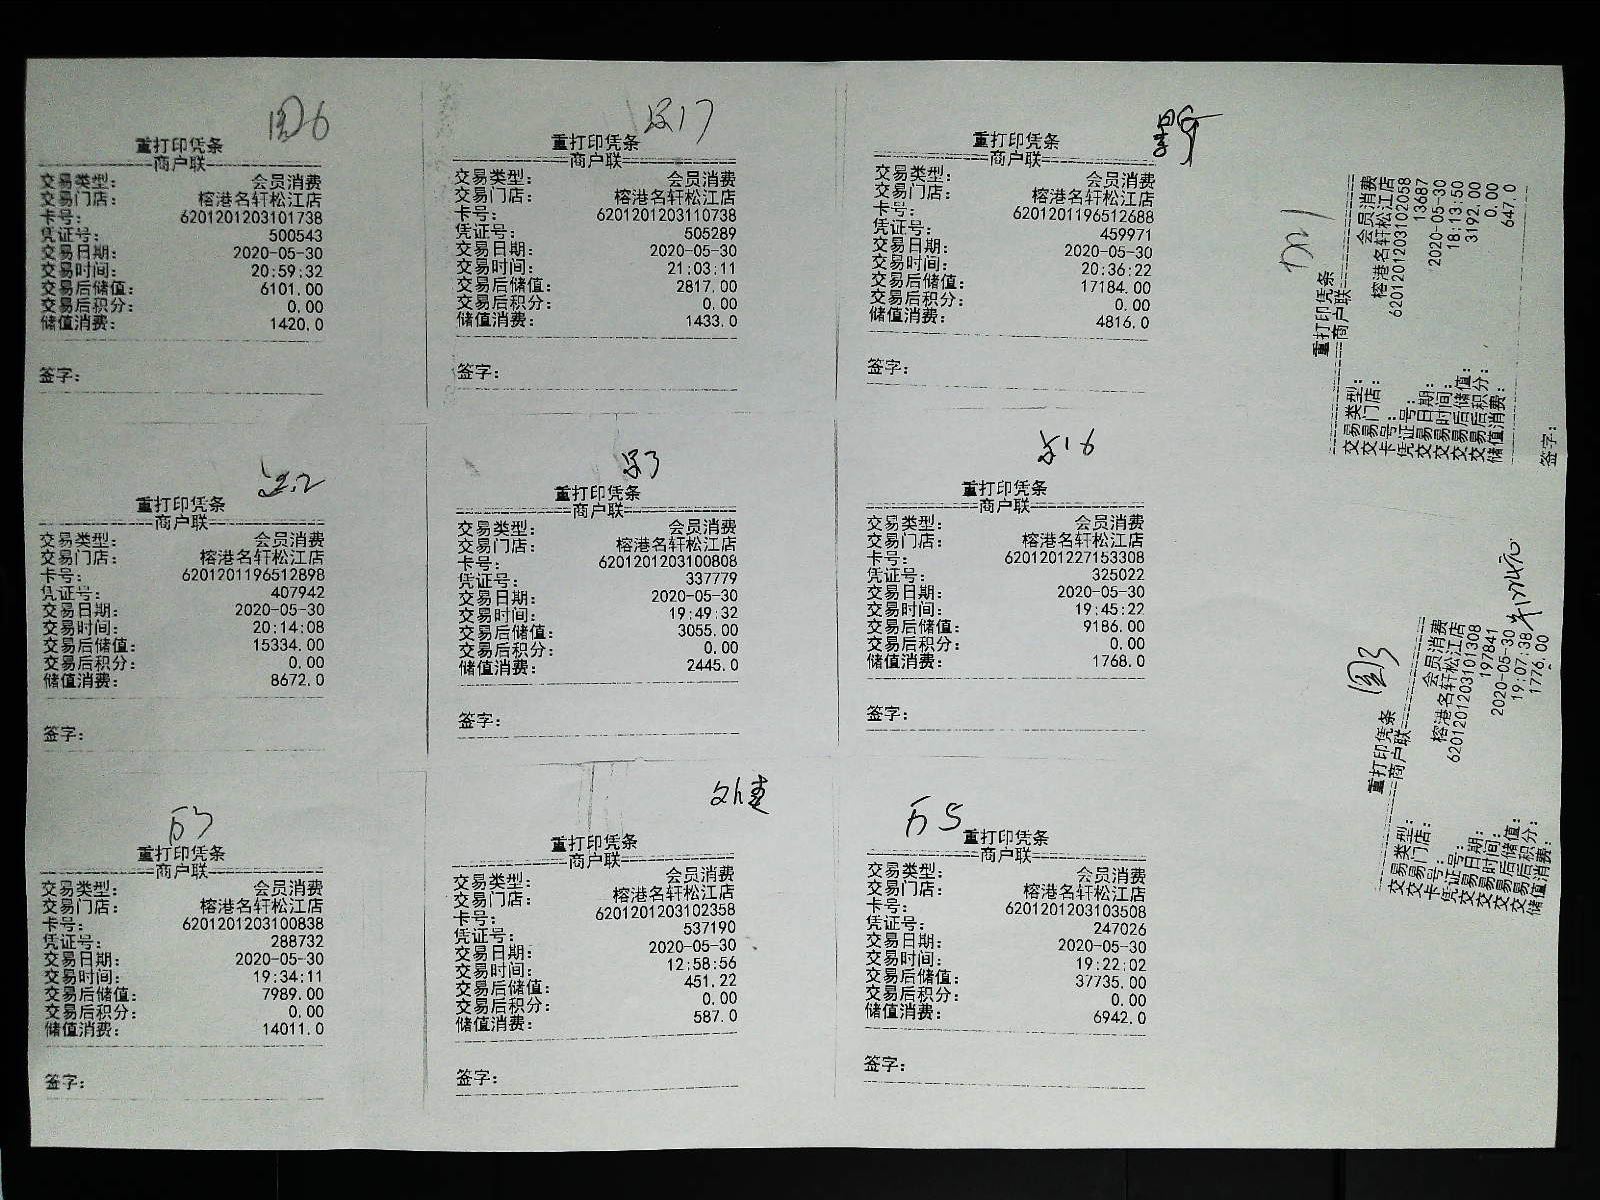 圆6
重打印凭条
商户联
交易类型： 会员消费
交易门店： 榕港名轩松江店
卡号： 6201201203101738
凭证号： 500543
交易日期： 2020-05-30
交易时间： 20:59:32
交易后储值： 6101.00
交易后积分： 0.00
储值消费： 1420.0
签字：
17
重打印凭条
商户联
交易类型： 会员消费
交易门店： 榕港名轩松江店
卡号： 6201201203110738
凭证号： 505289
交易日期： 2020-05-30
交易时间： 21:03:11
交易后储值： 2817.00
交易后积分： 0.00
储值消费： 1433.0
签字：
重打印凭条
商户联
交易类型： 会员消费
交易门店： 榕港名轩松江店
卡号： 6201201196512688
凭证号： 459971
交易日期： 2020-05-30
交易时间： 20:36:22
交易后储值： 17184.00
交易后积分： 0.00
储值消费： 4816.0
签字：
重打印凭条
商户联
交易类型： 会员消费
交易门店： 榕港名轩松江店
卡号： 6201201203102058
凭证号： 13687
交易日期： 2020-05-30
交易时间： 18:13:50
交易后储值： 3192.00
交易后积分： 0.00
储值消费： 647.0
签字：
重打印凭条
商户联
交易类型： 会员消费
交易门店： 榕港名轩松江店
卡号： 6201201196512898
凭证号： 407942
交易日期： 2020-05-30
交易时间： 20:14:08
交易后储值： 15334.00
交易后积分： 0.00
储值消费： 8672.0
签字：
3
重打印凭条
商户联
交易类型： 会员消费
交易门店： 榕港名轩松江店
卡号： 6201201203100808
凭证号： 337779
交易日期： 2020-05-30
交易时间： 19:49:32
交易后储值： 3055.00
交易后积分： 0.00
储值消费： 2445.0
签字：
16
重打印凭条
商户联
交易类型： 会员消费
交易门店： 榕港名轩松江店
卡号： 6201201227153308
凭证号： 325022
交易日期： 2020-05-30
交易时间： 19:45:22
交易后储值： 9186.00
交易后积分： 0.00
储值消费： 1768.0
签字：
圆3
重打印凭条
商户联
交易类型： 会员消费
交易门店： 榕港名轩松江店
卡号： 6201201203101308
凭证号： 197841
交易日期： 2020-05-30
交易时间： 19:07:38
交易后储值： 1776.00
交易后积分：
储值消费：
万3
重打印凭条
商户联
交易类型： 会员消费
交易门店： 榕港名轩松江店
卡号： 6201201203100838
凭证号： 288732
交易日期： 2020-05-30
交易时间： 19:34:11
交易后储值： 7989.00
交易后积分： 0.00
储值消费： 14011.0
签字：
外卖
重打印凭条
商户联
交易类型： 会员消费
交易门店： 榕港名轩松江店
卡号： 6201201203102358
凭证号： 537190
交易日期： 2020-05-30
交易时间： 12:58:56
交易后储值： 451.22
交易后积分： 0.00
储值消费： 587.0
签字：
万5
重打印凭条
商户联
交易类型： 会员消费
交易门店： 榕港名轩松江店
卡号： 6201201203103508
凭证号： 247026
交易日期： 2020-05-30
交易时间： 19:22:02
交易后储值： 37735.00
交易后积分： 0.00
储值消费： 6942.0
签字：